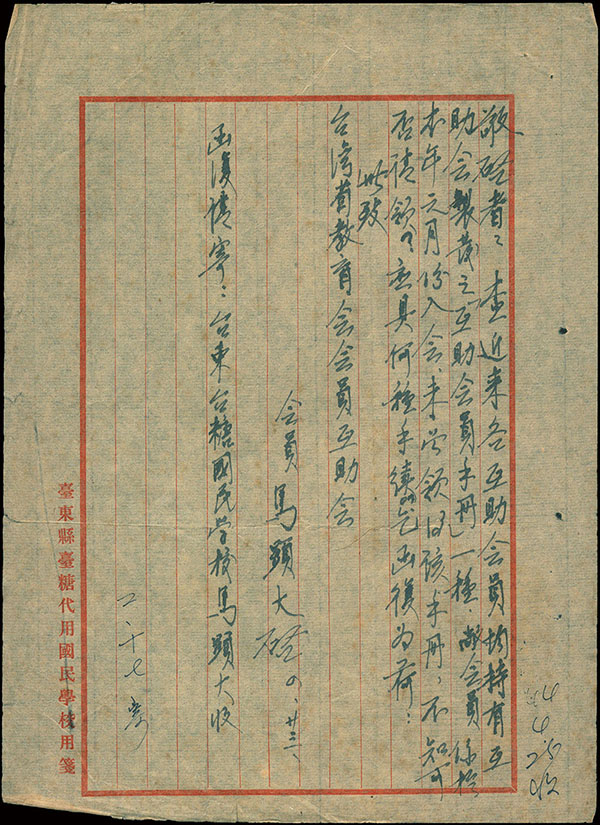 敬啓者：查近来各互助会員均持有互
助会製發之互助会員手冊一種敝会員係於
本年元月份入会、未曾領得該手冊，不知可
否請領？应具何種手續？乞函復为荷：
此致
台湾省教育会会員互助会
会員 馬顕大 啓 四、廿三、
函復請寄：台東台糖國民学校馬顕大收
二十七
臺東縣臺糖代用國民學校用箋
44
4
25收